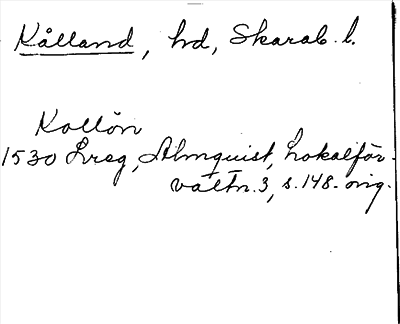 Kålland, hd, Skarab. l.
Kollön
1530 Lreg, Almquist, Lokalför-
valtn. 3, s. 148. orig.